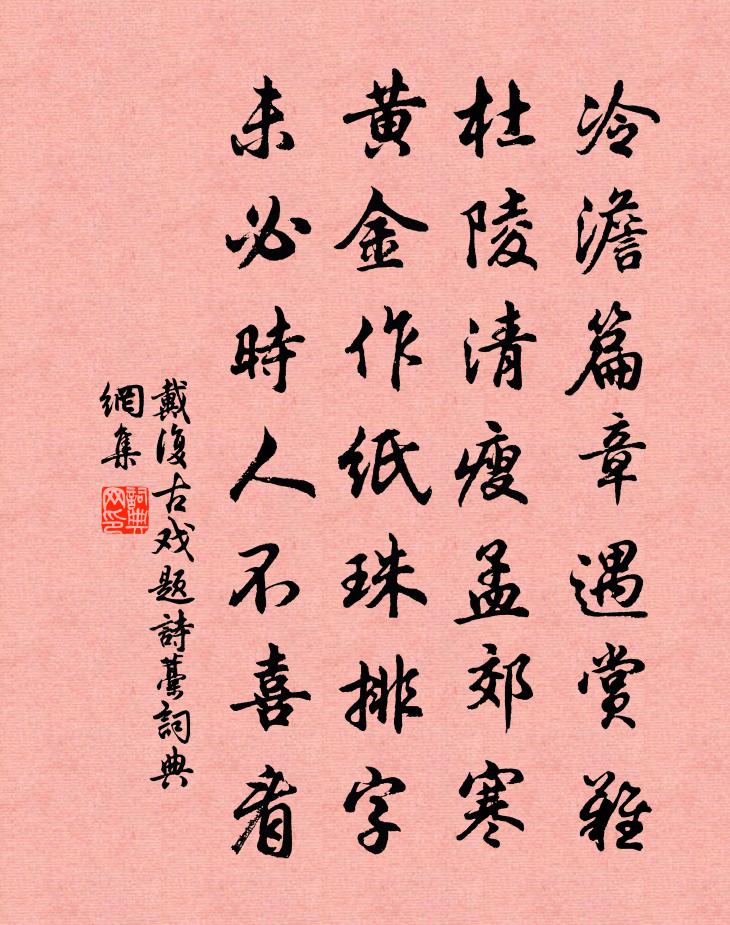 冷澹篇章遇賞難
杜陵清瘦孟郊寒
黃金作紙珠排字
未必時人不喜看
戴復古戏題詩藁詞典
網集
詞典网印